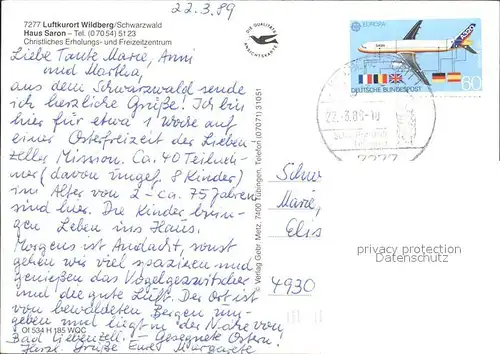 22.3.89
7277 Luftkurort Wildberg/Schwarzwald
Haus Saron – Tel. (0 70 54) 51 23
Christliches Erholungs- und Freizeitzentrum
DIE QUALITÄTS
ANSICHTSKARTE
Liebe Tante Marie, Anni
und Martha,
aus dem Schwarzwald sende
ich herzliche Grüße! Ich bin
hier für etwa 1 Woche auf
einer Osterfreizeit der Lieben-
zeller Mission. Ca. 40 Teilneh-
mer (davon ungef. 8 Kinder)
im Alter von 2 - ca. 75 Jahren
sind hier. Die Kinder brin-
gen Leben ins Haus.
Morgens ist Andacht, sonst
gehen wir viel spazieren und
genießen das Vogelgezwitscher
und die gute Luft. Der Ort ist
von bewaldeten Bergen um-
geben und liegt in der Nähe von
Bad Liebenzell. Gesegnete Ostern
Herzl. Grüße Eure Margarete
Of 534 H 185 WQC
© Verlag Gebr. Metz, 7400 Tübingen, Telefon (0 70 71) 3 10 51
EUROPA
A320
DEUTSCHE BUNDESPOST
60
22.-3.89-10
7277
Schw
Marie,
Elis
4930
privacy protection
Datenschutz